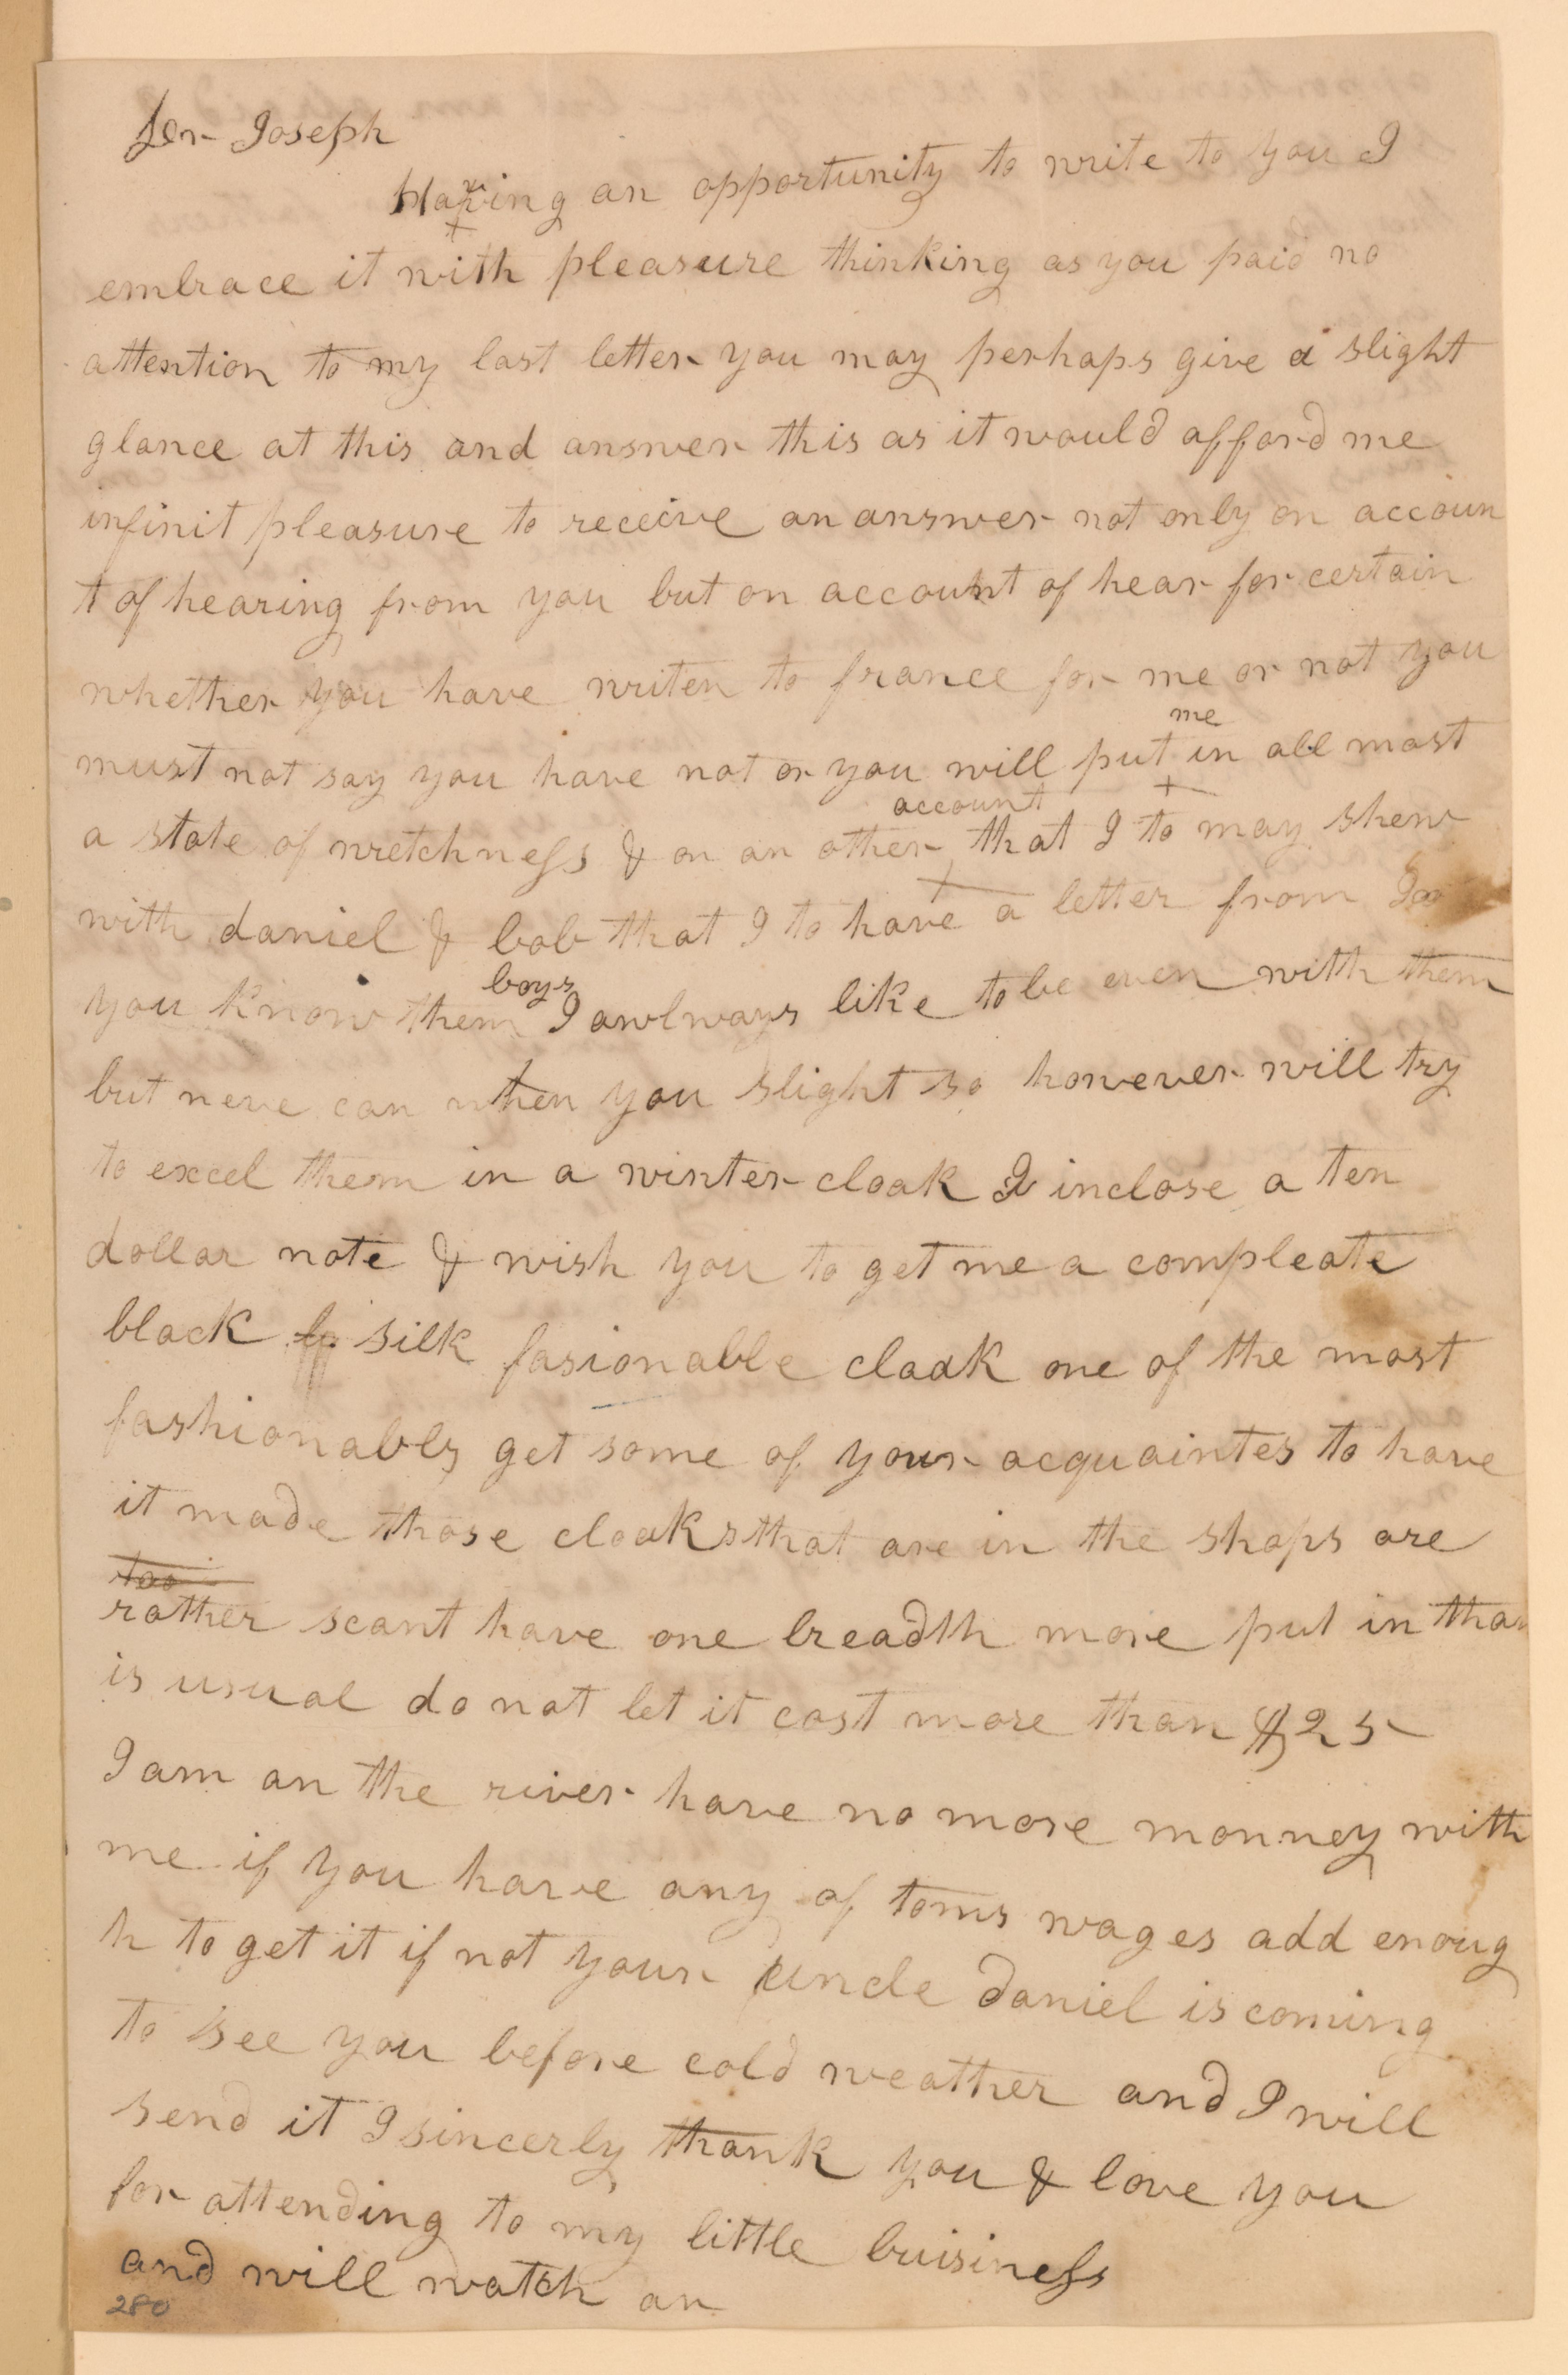 for Joseph
Having an opportunity to write to you I
embrace it with pleasure thinking as you paid no
attention to my last letter you may perhaps give a slight
glance at this and answer this as it would afford me
infinit pleasure to receive an answer not only on accoun
t of hearing from you but on account of hear for certain
whether you have writen to france for me or not you
me
must not say you have not or you will put in all most
account
a state of wretchness & on an other that I to may shew
with daniel & bob that I to have a letter from Joe
boys
you know them I awlways like to be even with them
but neve can when you slight so however will try
to excel them in a winter cloak I inclose a ten
dollar note & wish you to get me a compleate
black silk fasionable cloak one of the most
fashionably get some of your acquaintes to have
it made those cloaks that are in the shops are
too
rather scant have one breadth more put in than
is usual do not let it cost more than $25
I am on the river have no more monney with
me if you have any of toms wages add enoug
h to get it if not your uncle daniel is coming
to see you before cold weather and I will
send it I sincerly thank you & love you
for attending to my little buisiness
and will watch an
280